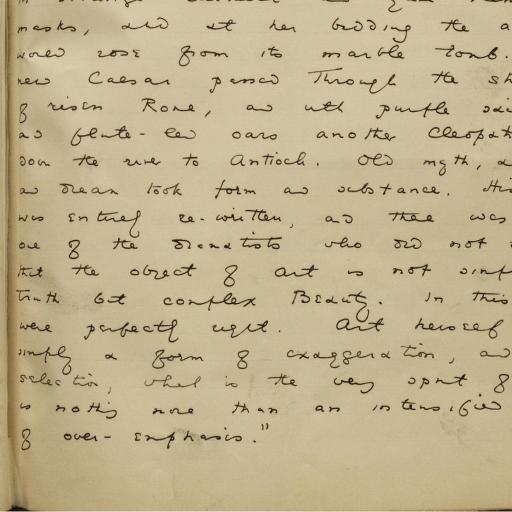 masks, and at her bidding the a
world rose from its marble tomb.
new Caesar passed Through the
of risen Rome, and with purple
and flute-led oars another Cleopat
down the river to Antioch. Old myth, a
and dream took form and substance. His
was entirely re-written, and there was
one of the dramatists who did not
that the object of art is not simp
truth but complex Beauty. In this
were perfectly right. Art herself
simply a form of exaggeration, and
selection, which is the very spirit of
is nothing more than an intensified
of over-emphasis."